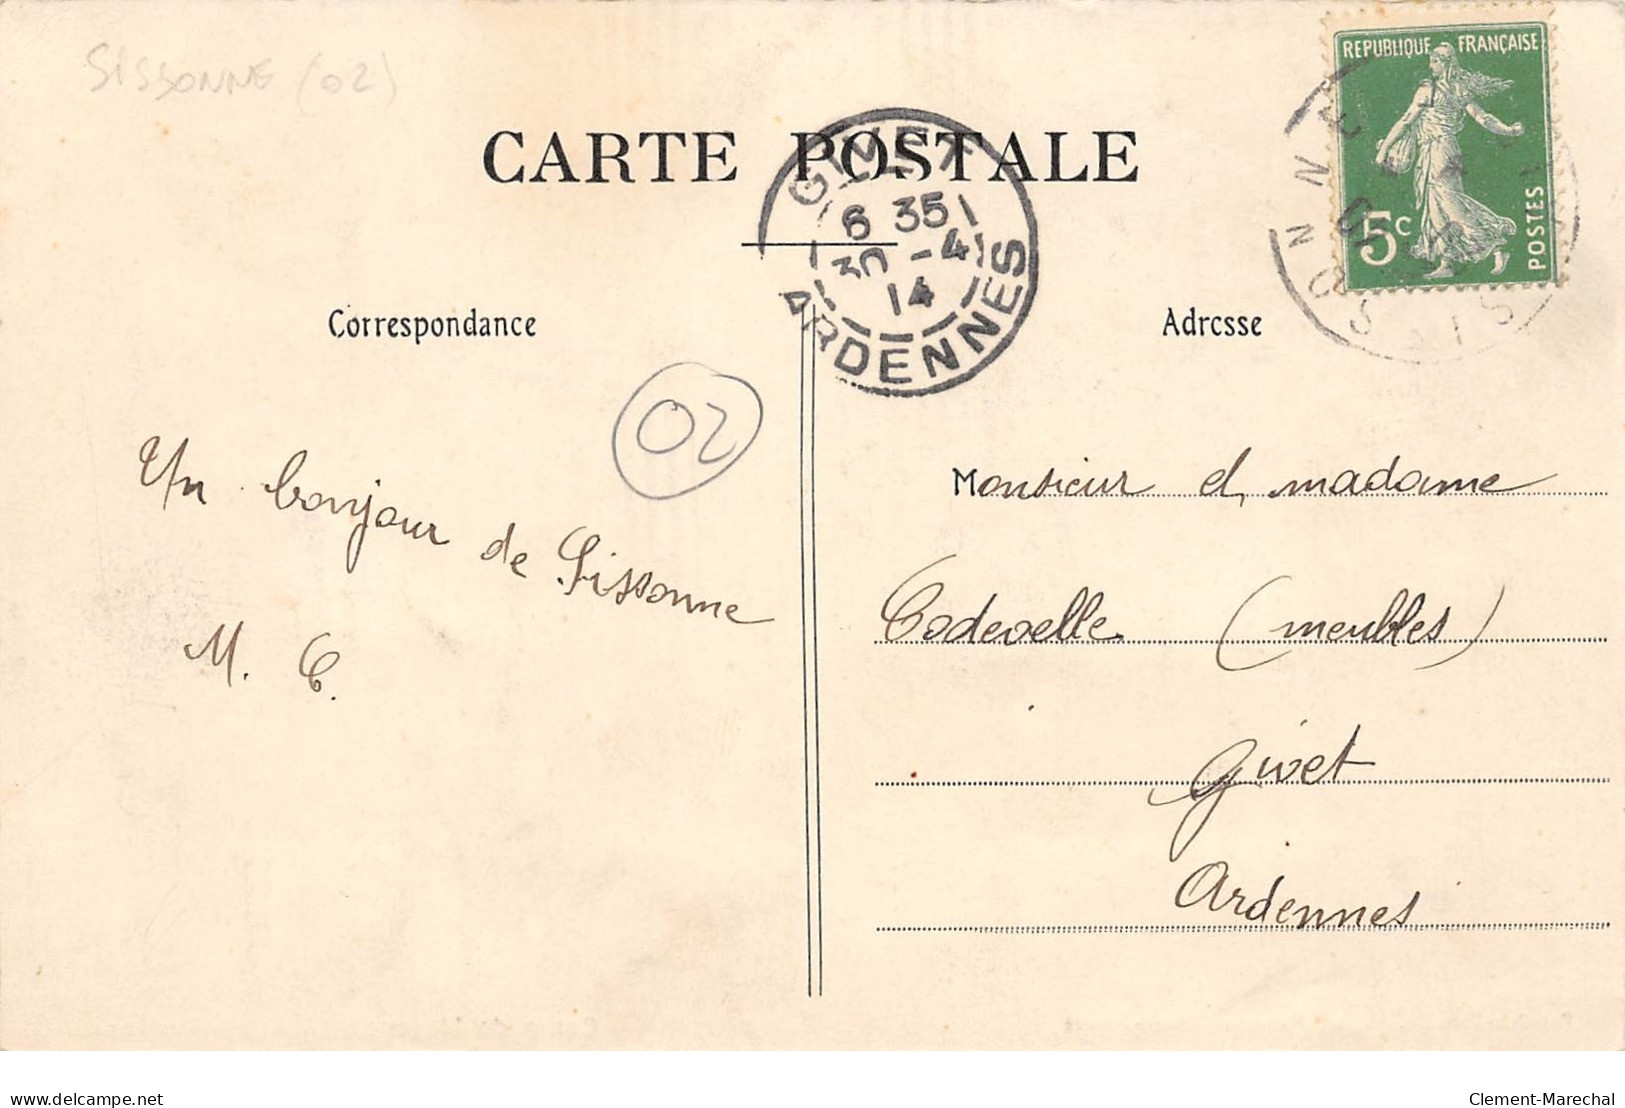 SISSONNE (02)
CARTE POSTALE
REPUBLIQUE FRANÇAISE
5c
POSTES
GIVET
6 35
30 -4
14
ARDENNES
SISSONNE
Correspondance
Adresse
02
Un bonjour de Sissonne
M. C.
Monsieur et madame
Codevelle (meubles)
Givet
Ardennes
Clement-Marechal